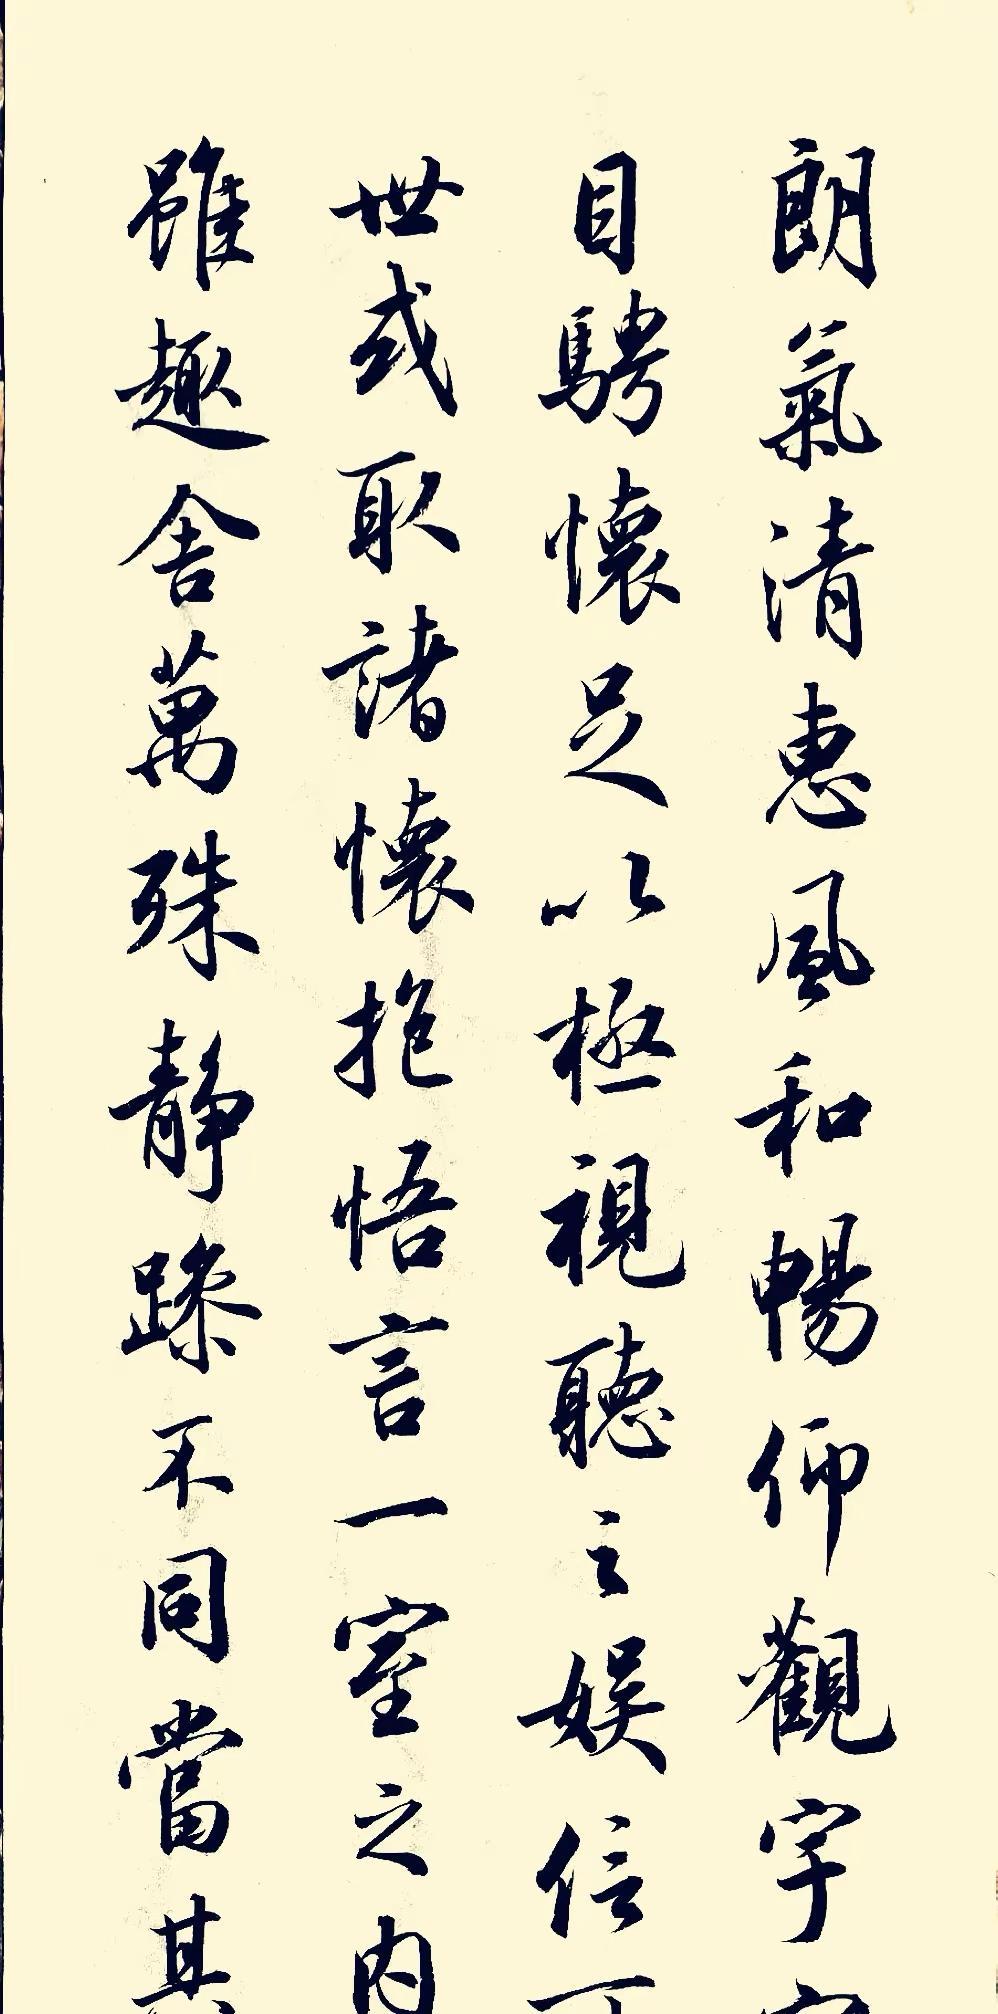 朗氣清惠風和暢仰觀宇宙
目騁懷足以極視聽之娛信可
世或取諸懷抱悟言一室之内
雖趣舍萬殊静躁不同當其